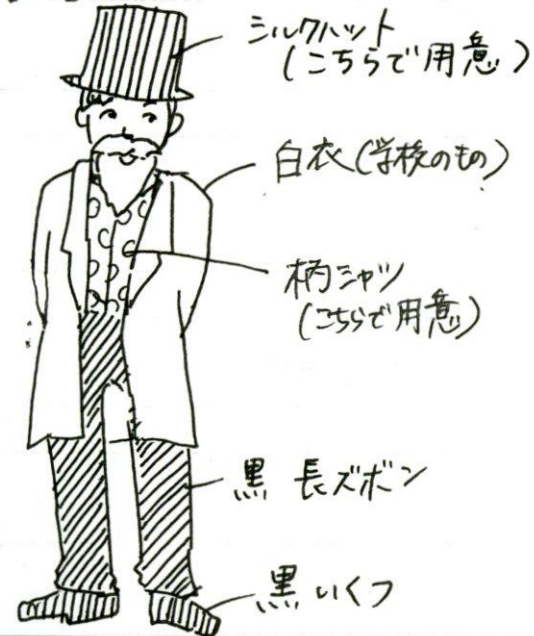 シルクハット
(こちらで用意)
白衣(学校のもの)
柄シャツ
(こちらで用意)
黒 長ズボン
黒いくつ